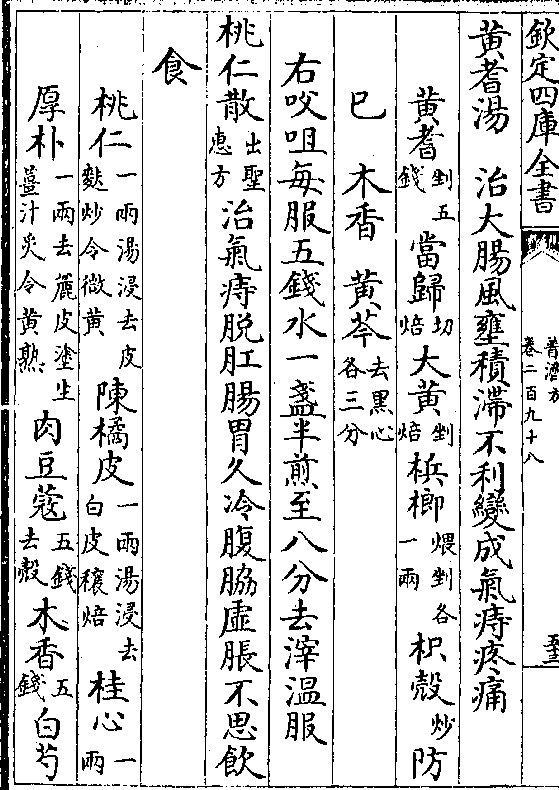 欽定四庫全書
普濟方
卷二百九十八
黄耆湯　治大腸風壅積滯不利變成氣痔疼痛
黄耆剉五錢　當歸切焙　大黄剉焙　梹榔煨剉各一兩　枳殻炒　防
巳　木香　黄芩去黒心各三分
右㕮咀每服五錢水一盞半煎至八分去滓温服
桃仁散出聖惠方　治氣痔脱肛腸胃久冷腹脇虛脹不思飲
食
桃仁一兩湯浸去皮麩炒令微黄　陳橘皮一兩湯浸去白皮穰焙　桂心一兩
厚朴一兩去麤皮塗生薑汁炙令黄熟　肉豆蔻五錢去殻　木香五錢　白芍